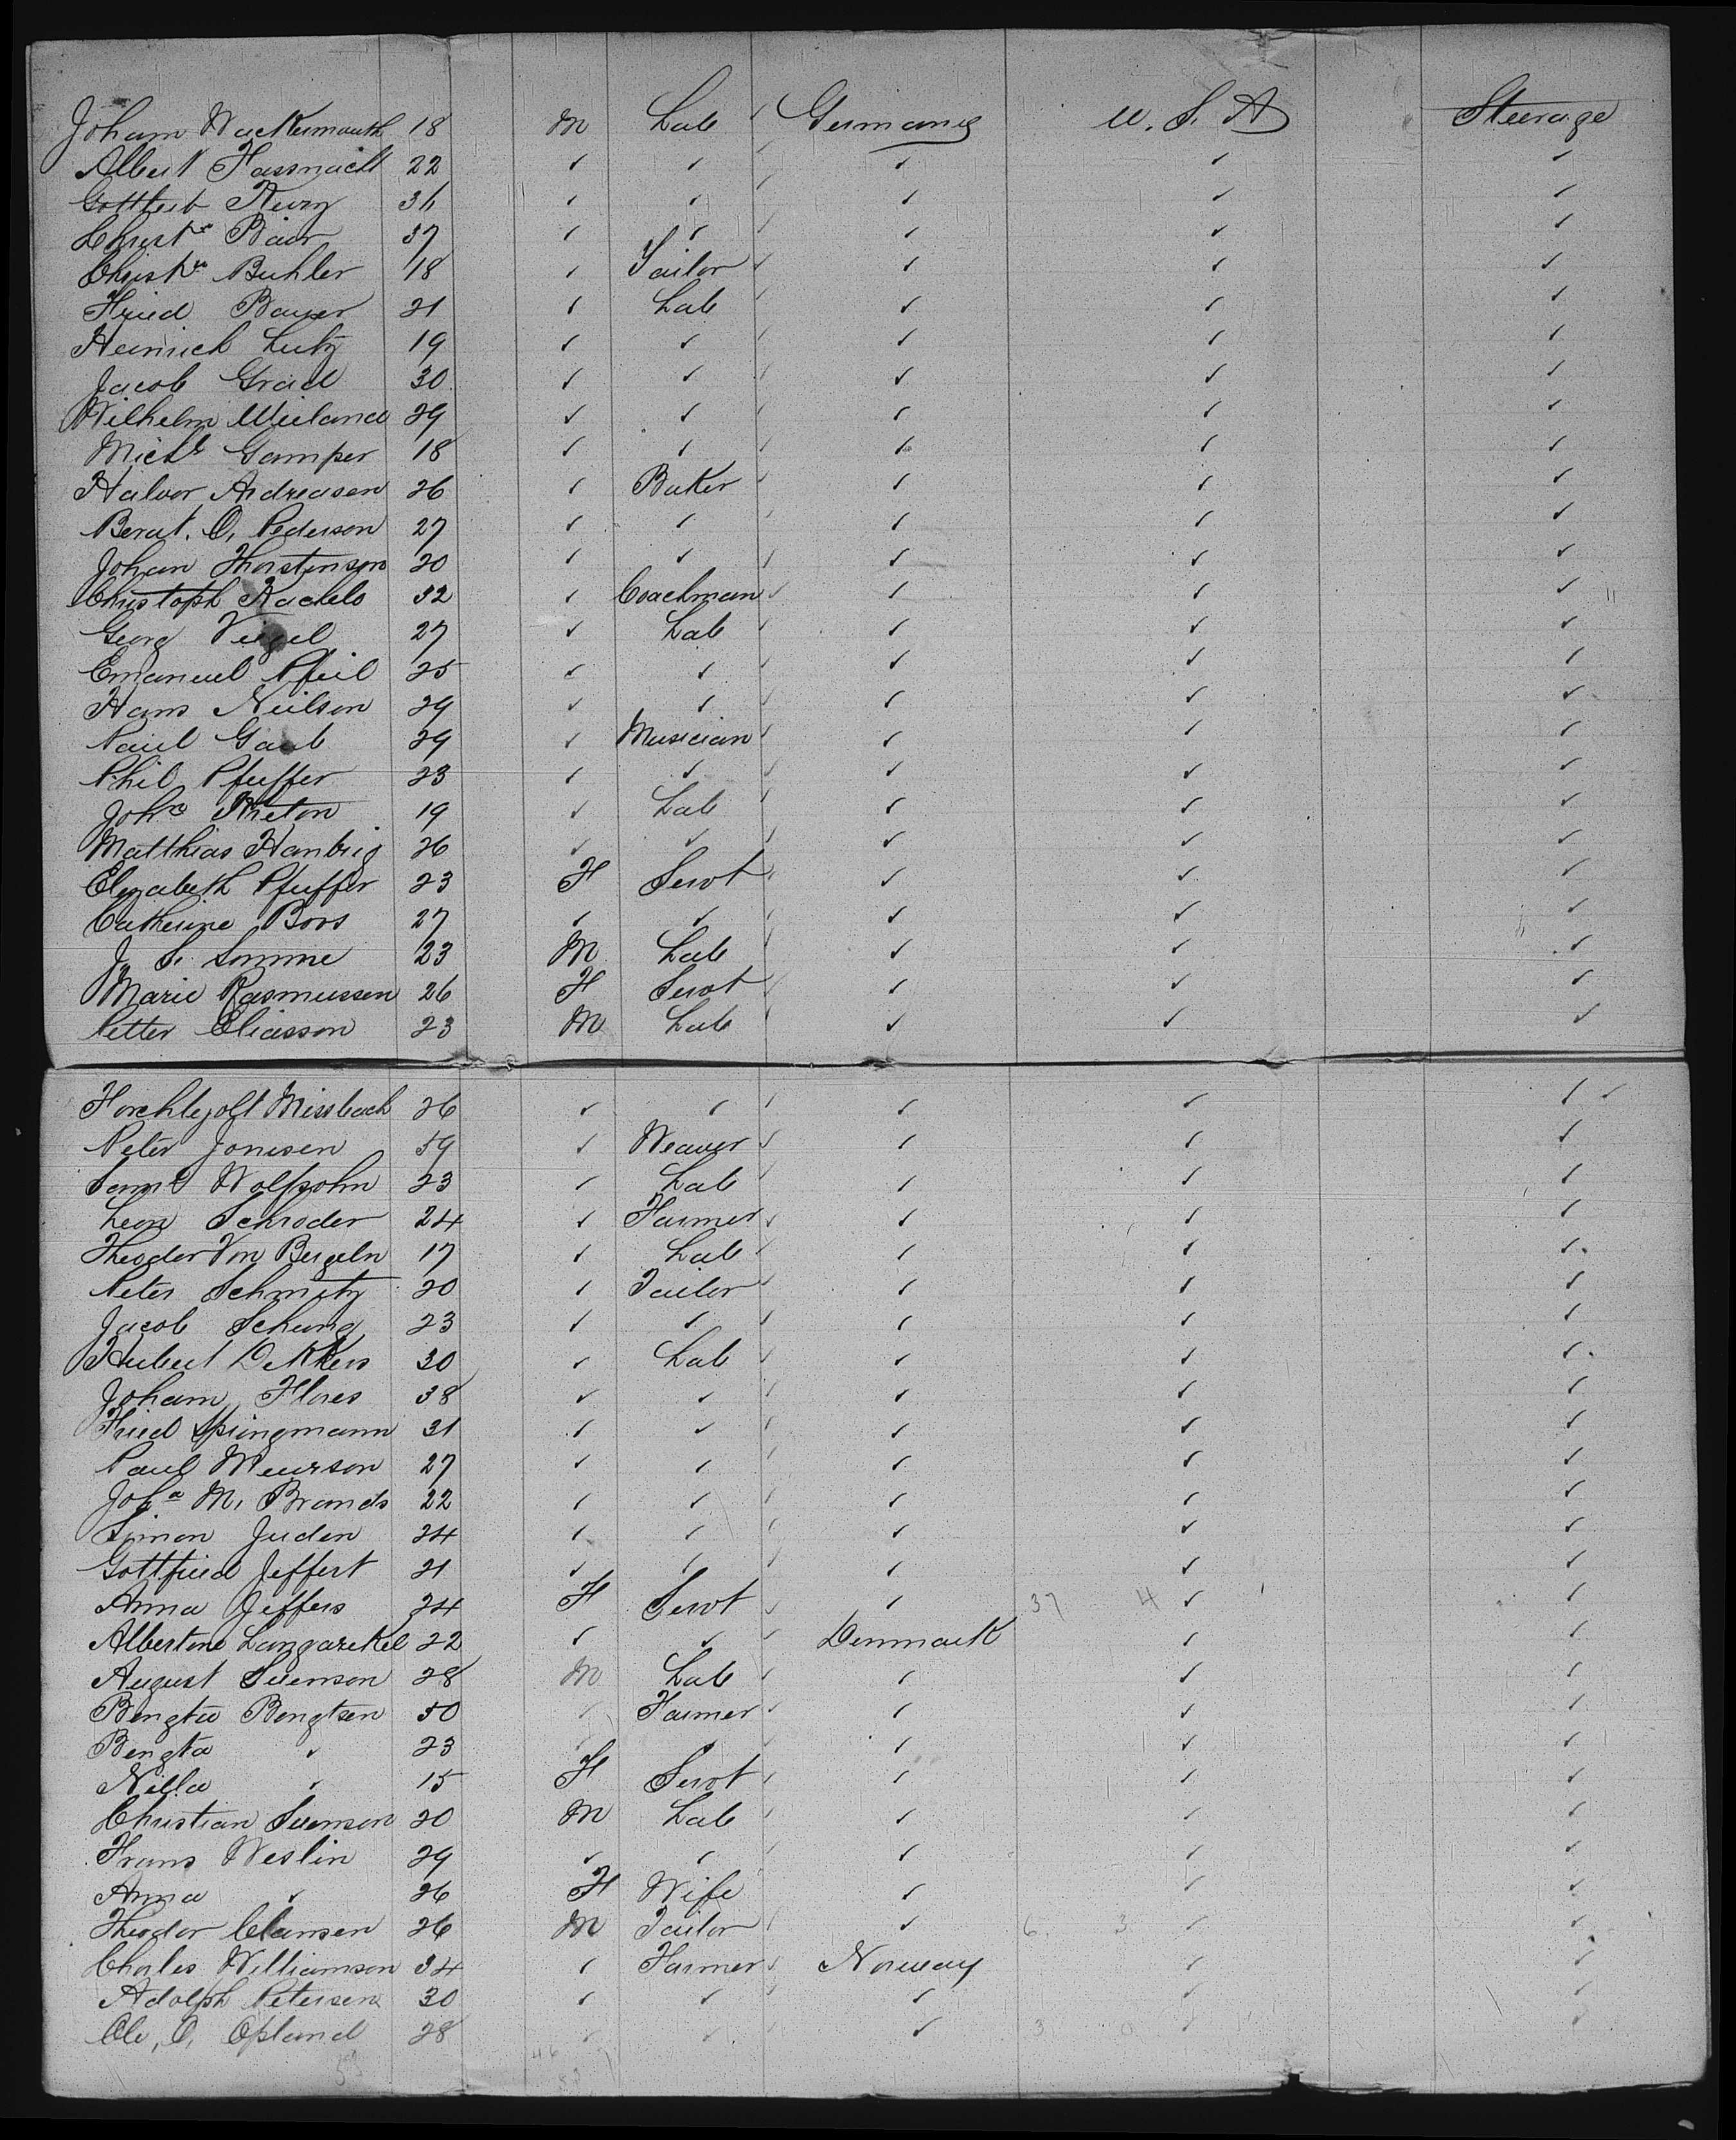 Johann Wackermauth 18 M Lab ✓ Germany U.S.A Steerage
Albert Fassnacht 22 ✓ ✓ ✓ ✓ ✓ ✓
Gottlieb Kurz ✓ ✓ ✓ ✓ ✓ ✓
Christn Baur 37 ✓ ✓ ✓ ✓ ✓ ✓
Christn Buhler 18 ✓ Tailor ✓ ✓ ✓ ✓
Fried Bauer 21 ✓ Lab ✓ ✓ ✓ ✓
Heinrich Lutz 19 ✓ ✓ ✓ ✓ ✓ ✓
Jacob Grad 30 ✓ ✓ ✓ ✓ ✓ ✓
Wilhelm Wieland 29 ✓ ✓ ✓ ✓ ✓ ✓
Michl Gamper 18 ✓ ✓ ✓ ✓ ✓ ✓
Halvor Andreasen 26 ✓ Baker ✓ ✓ ✓ ✓
Bernt. O. Pederson 27 ✓ ✓ ✓ ✓ ✓ ✓
Johan Thorstenson 20 ✓ ✓ ✓ ✓ ✓ ✓
Christoph Kachelo 32 ✓ Coachman ✓ ✓ ✓ ✓
Georg Viegel 27 ✓ Lab ✓ ✓ ✓ ✓
Emanuel Pfeil 25 ✓ ✓ ✓ ✓ ✓ ✓
Hans Neilson 29 ✓ ✓ ✓ ✓ ✓
Paul Gaub 29 ✓ Musician ✓ ✓ ✓ ✓
Phil Pfeffer 23 ✓ ✓ ✓ ✓ ✓ ✓
Johs Theton 19 ✓ Lab ✓ ✓ ✓ ✓
Matthias Hanbrig 26 ✓ ✓ ✓ ✓ ✓ ✓
Elizabeth Pfeffer 23 F Servt ✓ ✓ ✓ ✓
Catherine Boos 27 ✓ ✓ ✓ ✓ ✓ ✓
J. S. Somme 23 M Lab ✓ ✓ ✓ ✓
Marie Rasmussen 26 F Servt ✓ ✓ ✓ ✓
Petter Eliasson 23 M Lab ✓ ✓ ✓ ✓
Missbach 26 ✓ ✓ ✓ ✓ ✓ ✓ ✓
Peter Jonisen 59 ✓ Weaver ✓ ✓ ✓ ✓
Saml Wolfsohn 23 ✓ Lab ✓ ✓ ✓ ✓
Leon Schroder 24 ✓ Farmer ✓ ✓ ✓ ✓
Theodor Von Bergeln 17 ✓ Lab ✓ ✓ ✓ ✓
Peter Schmitz 20 ✓ Tailor ✓ ✓ ✓ ✓
Jacob Schung 23 ✓ ✓ ✓ ✓ ✓ ✓
Hubert Dekkers 30 ✓ Lab ✓ ✓ ✓ ✓
Johann Flores 38 ✓ ✓ ✓ ✓ ✓ ✓
Fried Springmann 31 ✓ ✓ ✓ ✓ ✓ ✓
Paul Meurson 27 ✓ ✓ ✓ ✓ ✓ ✓
Joha M. Brands 22 ✓ ✓ ✓ ✓ ✓ ✓
Simon Juden 24 ✓ ✓ ✓ ✓ ✓ ✓
Gottfried Jeffert 21 ✓ ✓ ✓ ✓ ✓ ✓
Anna Jeffers 24 F Servt ✓ ✓ 37 4 ✓ ✓
Albertine Langarekel 22 ✓ ✓ ✓ Denmark ✓ ✓
August Svenson 28 M Lab ✓ ✓ ✓ ✓
Bengta Bengtsen 50 ✓ Farmer ✓ ✓ ✓ ✓
Bengta ✓ 23 ✓ ✓ ✓ ✓ ✓ ✓
Nilla ✓ 15 F Servt ✓ ✓ ✓ ✓
Christian Svenson 20 M Lab ✓ ✓ ✓ ✓
Frans Weslin 29 ✓ ✓ ✓ ✓ ✓ ✓
Anna ✓ 26 F Wife ✓ ✓ ✓
Theodor Clansen 26 M Tailor ✓ ✓ 6 3 ✓ ✓
Charles Williamson 34 ✓ Farmer ✓ Norway ✓ ✓
Adolph Petersen 30 ✓ ✓ ✓ ✓ ✓ ✓
Ole, O, Opland 28 ✓ ✓ ✓ ✓ 3 0 ✓ ✓
53 46